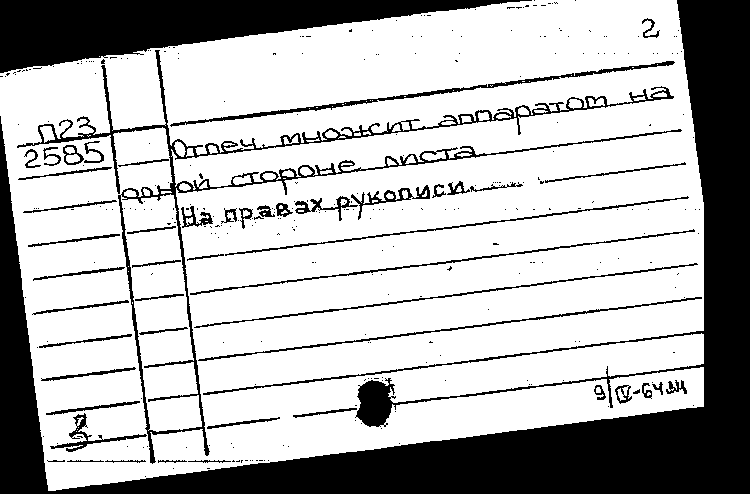 2
П23
2585
Отпеч. множит. аппаратом на
одной стороне листа.
На правах рукописи.
3.
9/IV-64